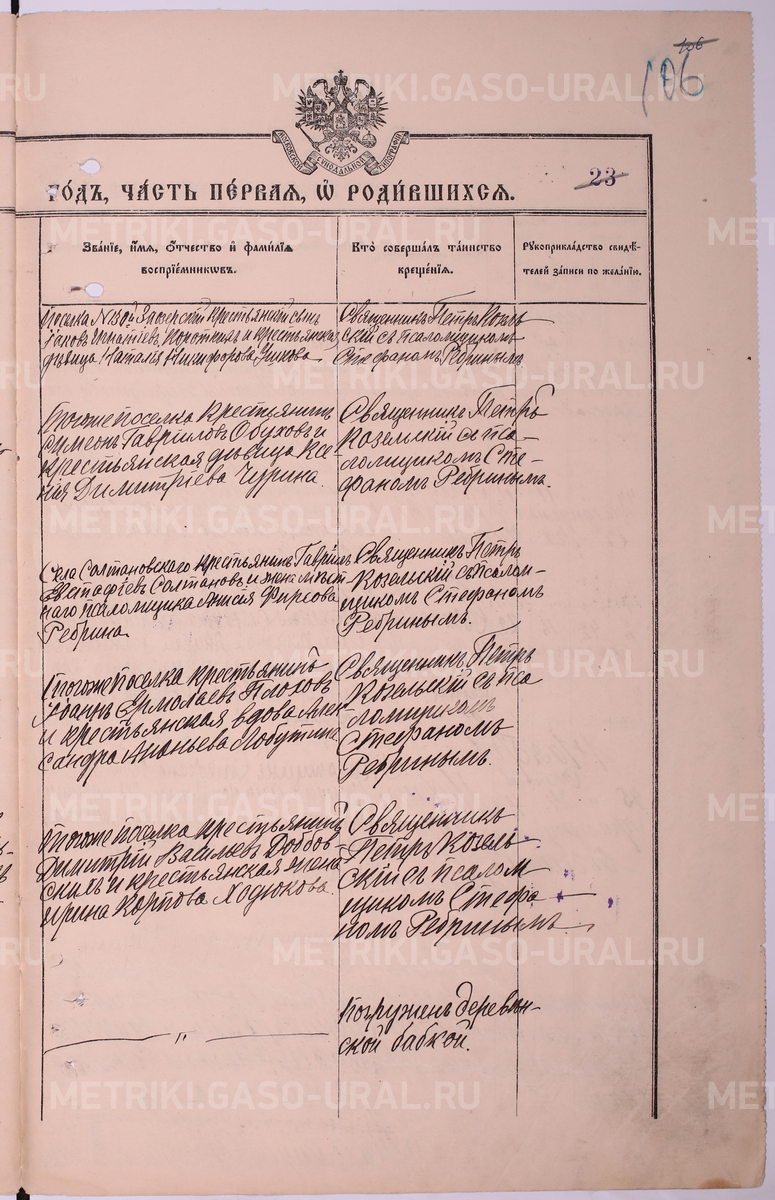 106
106
МОСКОВСКОЙ СѴНОДАЛЬНОЙ ТИПОГРАФІИ
го́дъ, ча́сть пе́рвая, ѡ҆ роди́вшихсѧ.
23
Зва́нїе, и҆́мѧ, ѻ҆́тчество и҆ фами́лїѧ
воспрїе́мникѡвъ.
Кто̀ соверша́лъ та́инство
креще́нїѧ.
Рꙋкоприкла́дство свидѣ́-
телей за́писи по жела́нїю.
Поселка крестьянскій сынъ
Іаковъ Игнатіевъ и крестьянская
дѣвица Наталья Никифорова
Священникъ Петръ Козель
скій съ псаломщикомъ
Стефаномъ Ребринымъ.
Тогоже поселка крестьянинъ
Симеонъ Гавріиловъ Обуховъ и
крестьянская дѣвица Ксе
нія Димитріева Чурина.
Священникъ Петръ
Козельскій съ пса-
ломщикомъ Сте-
фаномъ Ребринымъ.
Села Салтановскаго крестьянинъ Гавріилъ
Евстафіевъ Салтановъ и жена мѣст
наго псаломщика Анисія Фирсова
Ребрина.
Священникъ Петръ
Козельскій съ псалом-
щикомъ Стефаномъ
Ребринымъ.
Тогоже поселка крестьянинъ
Іоаннъ Ермолаевъ Плоховъ
и крестьянская вдова Алек
сандра Ананьева Лобутина
Священникъ Петръ
Козельскій съ пса
ломщикомъ
Стефаномъ
Ребринымъ.
Тогоже поселка крестьянинъ
Димитрій Васильевъ
и крестьянская жена
Ирина Карпова Ходюкова.
Священникъ
Петръ Козель-
скій съ псалом
щикомъ Стефа
номъ Ребринымъ.
Погруженъ деревен-
ской бабкой.
METRIKI.GASO-URAL.RU